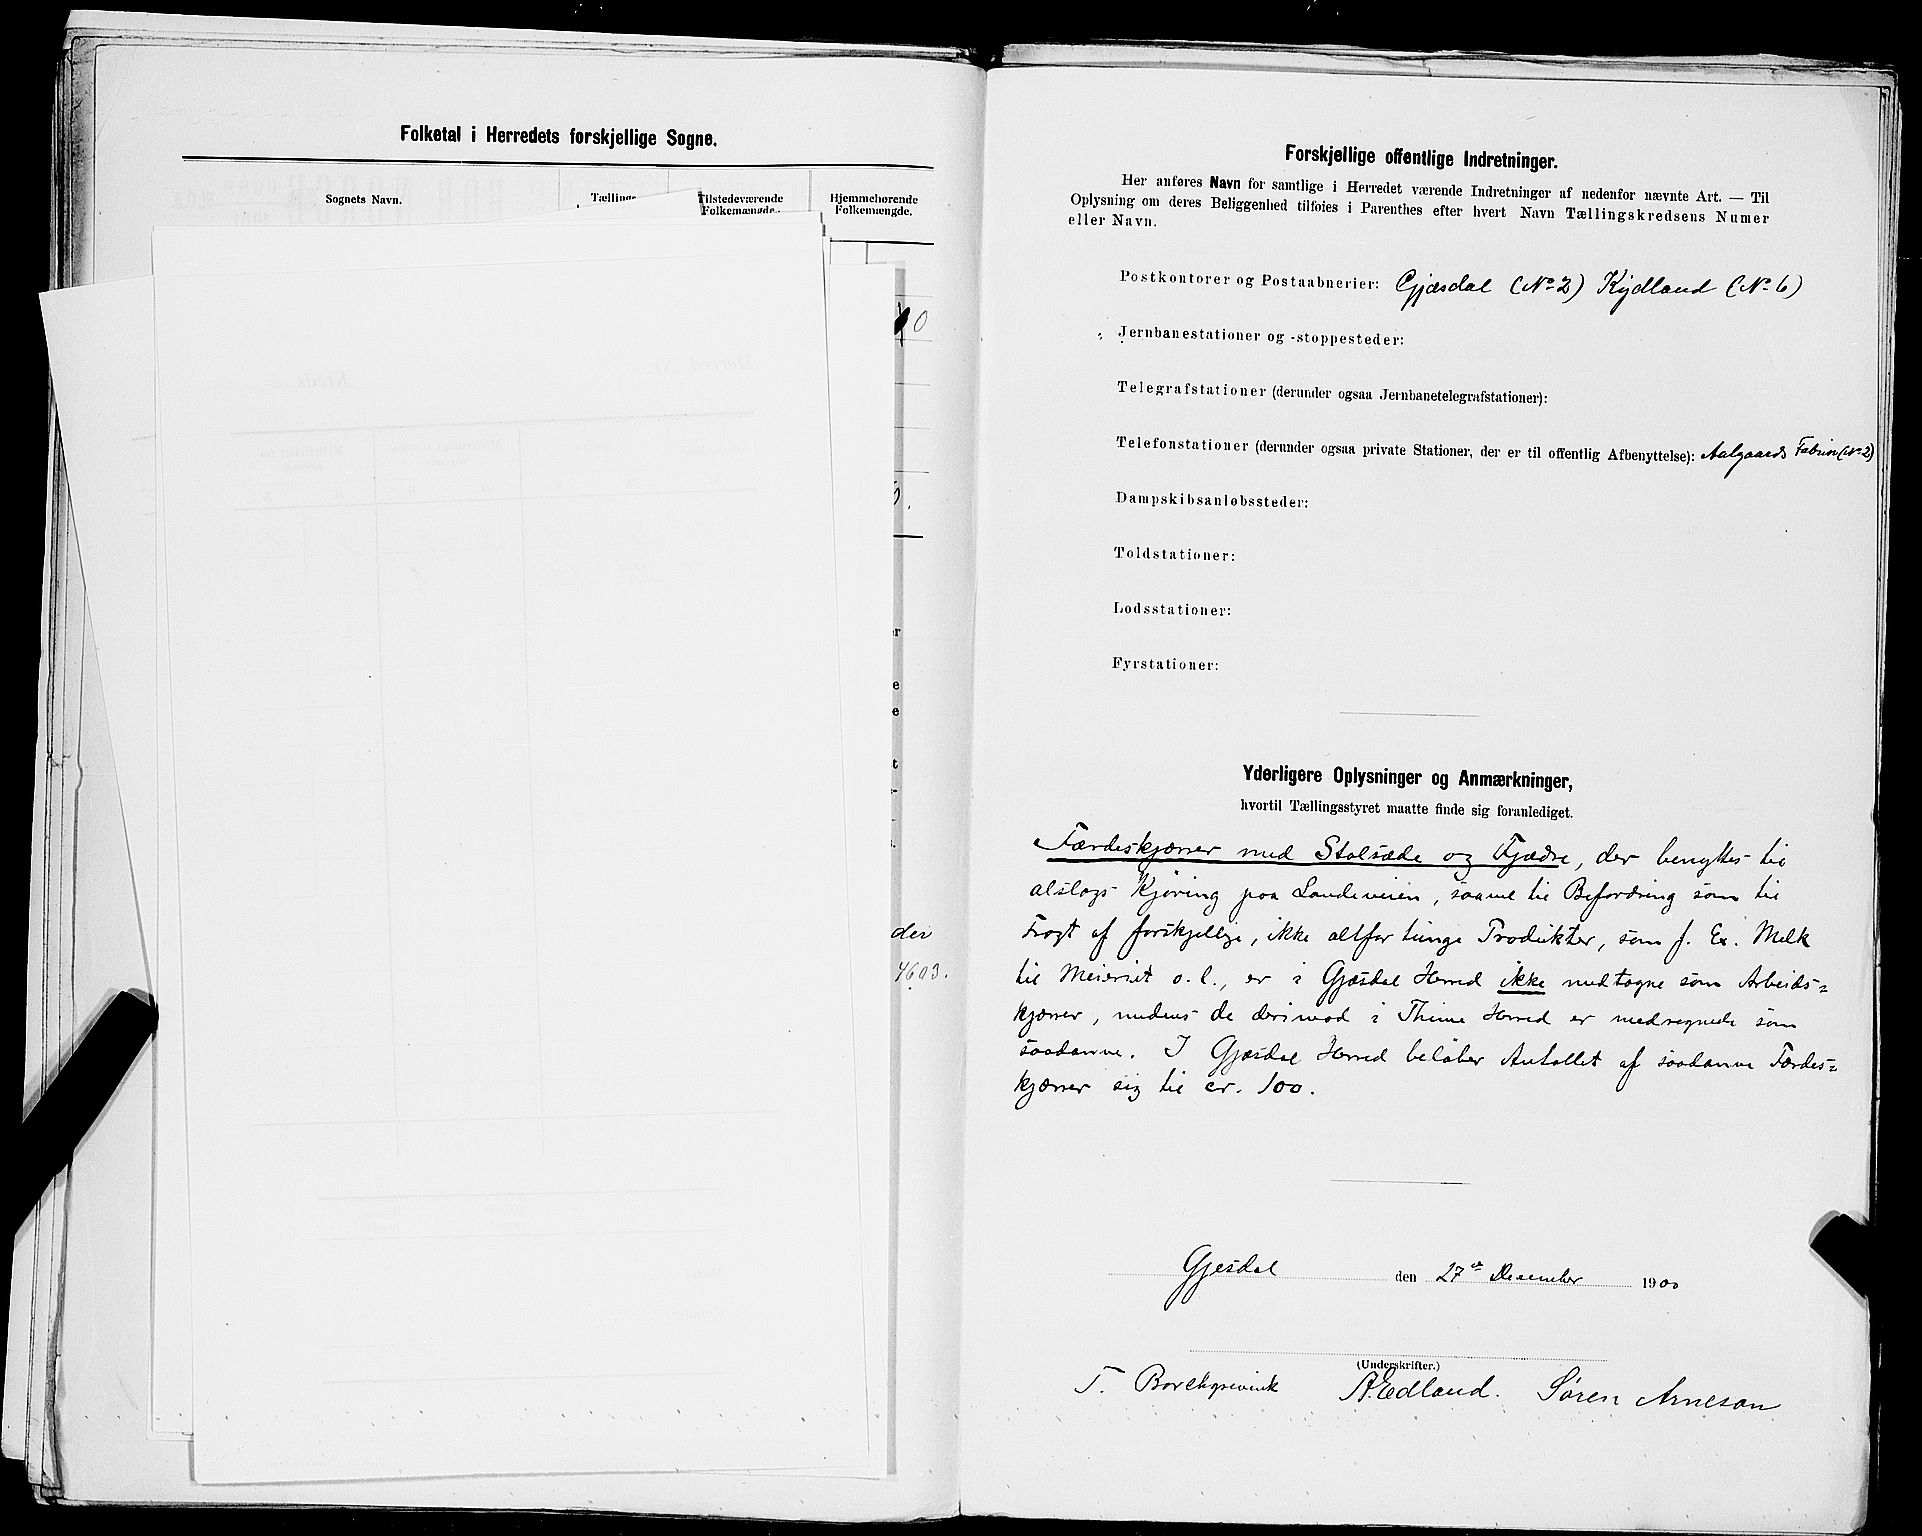 Folketal i Herredets forskjellige Sogne.
Sognets Navn.
Tællings-
Tilstedeværende
Folkemængde.
Hjemmehørende
Folkemængde.
0
der
4603.
Forskjellige offentlige Indretninger.
Her anføres Navn for samtlige i Herredet værende Indretninger af nedenfor nævnte Art. — Til
Oplysning om deres Beliggenhed tilføies i Parenthes efter hvert Navn Tællingskredsens Numer
eller Navn.
Postkontorer og Postaabnerier: Gjæsdal (No 2) Kydland (No 6)
Jernbanestationer og -stoppesteder:
Telegrafstationer (derunder ogsaa Jernbanetelegrafstationer):
Telefonstationer (derunder ogsaa private Stationer, der er til offentlig Afbenyttelse): Aalgaards (No 2)
Dampskibsanløbssteder:
Toldstationer:
Lodsstationer:
Fyrstationer:
Yderligere Oplysninger og Anmærkninger,
hvortil Tællingsstyret maatte finde sig foranlediget.
Færdeskjærrer med Stolsæde og Fjædre, der benyttes til
alslags Kjøring paa Landeveien, saavel til Befordring som til
Fragt af forskjellige, ikke altfor tunge Produkter, som f. Ex. Melk
til Meieriet o. l., er i Gjæsdal Herred ikke medtagne som Arbeids=
kjærrer, medens de derimod i Thime Herred er medregnede som
saadanne. I Gjæsdal Herred beløber Antallet af saadanne Færdes=
kjærrer sig til cr. 100.
Gjesdal den 27de December 1900
(Underskrifter.)
T. Borchgrevink A. Edland. Søren Arnesen